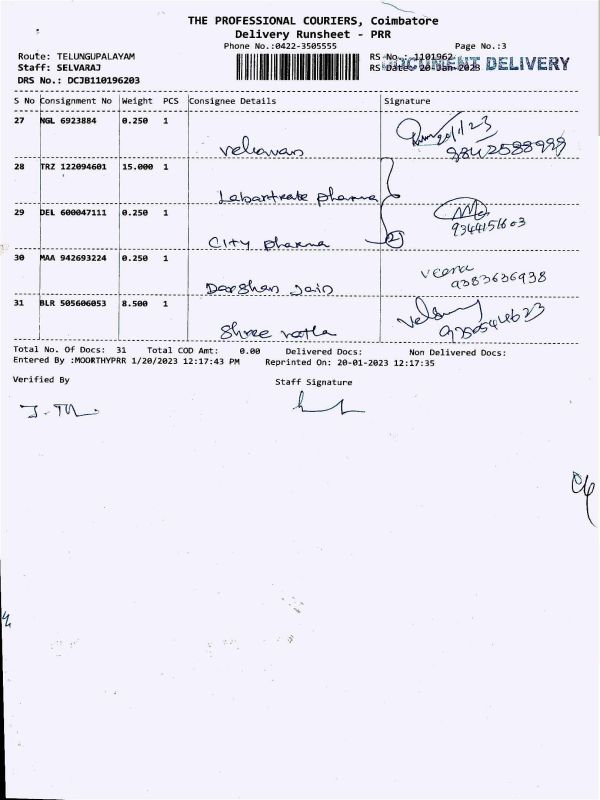 THE PROFESSIONAL COURIERS, Coimbatore
Delivery Runsheet - PRR
Phone No.:0422-3505555 Page No.:3
Route: TELUNGUPALAYAM RS No.: 1101962
Staff: SELVARAJ RS Date: 20-Jan-2023 DOCUMENT DELIVERY
DRS No.: DCJB110196203
S No Consignment No Weight PCS Consignee Details Signature
27 NGL 6923884 0.250 1
20/1/23
velavan 9842588999
28 TRZ 122094601 15.000 1
pharma
29 DEL 600047111 0.250 1
9344151603
City pharma
30 MAA 942693224 0.250 1
veena
9383636938
Darshan Jain
31 BLR 505606053 8.500 1
Shree
Total No. Of Docs: 31 Total COD Amt: 0.00 Delivered Docs: Non Delivered Docs:
Entered By :MOORTHYPRR 1/20/2023 12:17:43 PM Reprinted On: 20-01-2023 12:17:35
Verified By Staff Signature